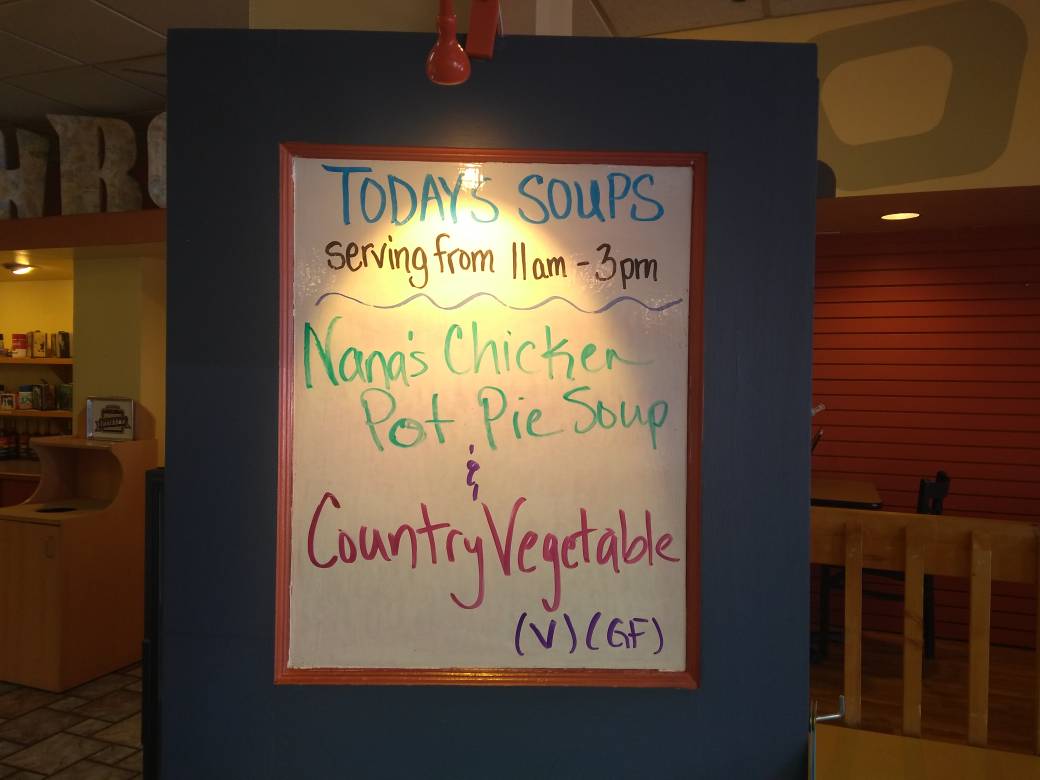 TODAY'S SOUPS
serving from 11am - 3pm
Nana's Chicken
Pot Pie Soup
&
Country Vegetable
(V) (GF)